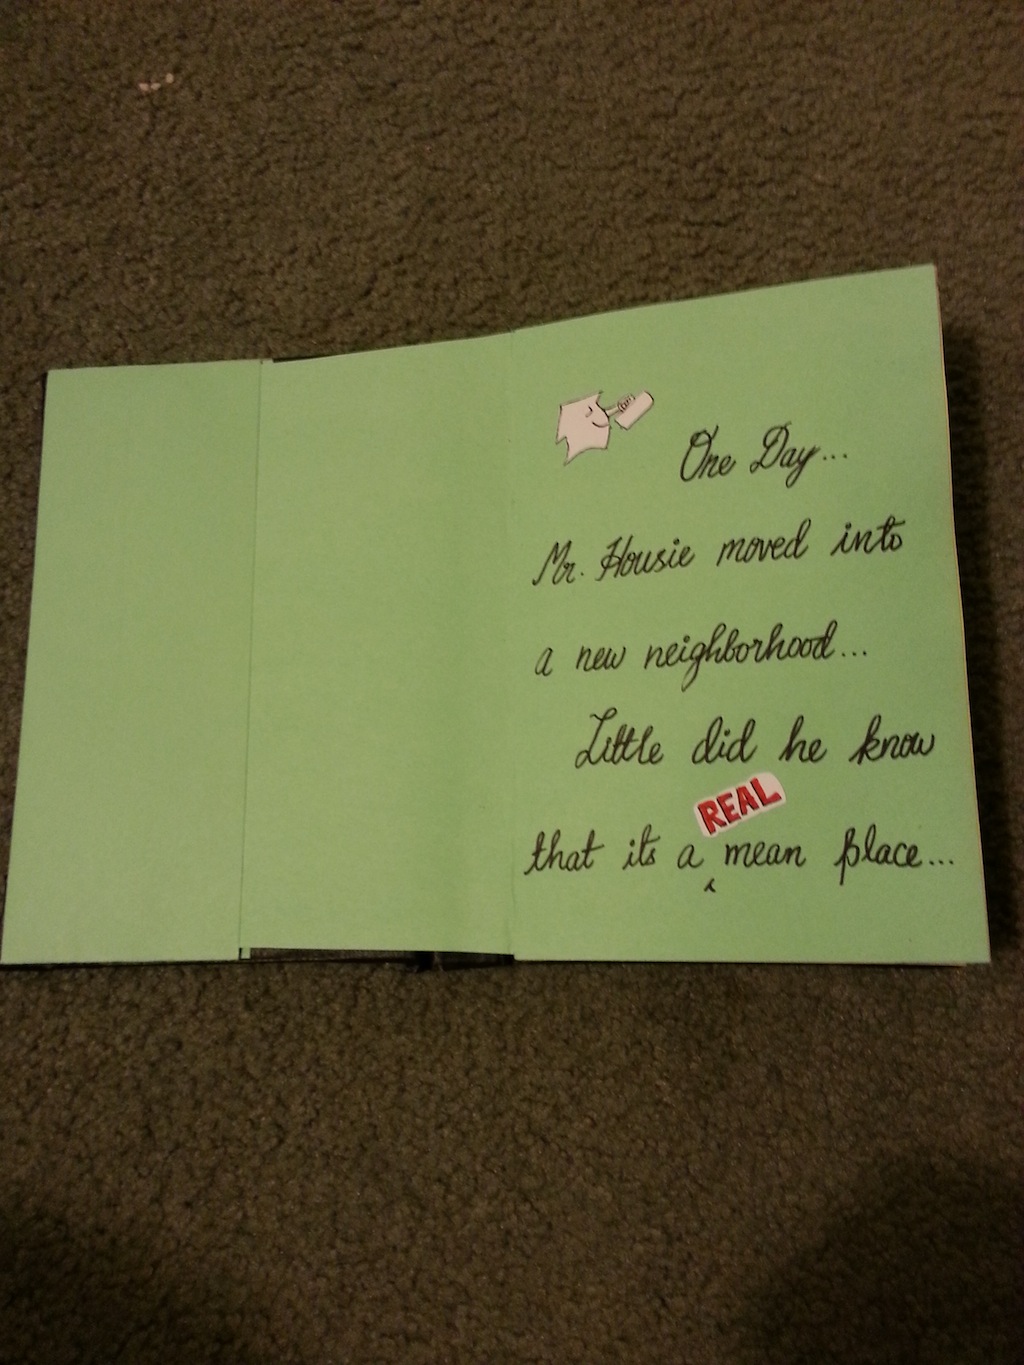 One Day...
Mr. Housie moved into
a new neighborhood...
Little did he know
REAL
that its a ‸ mean place...